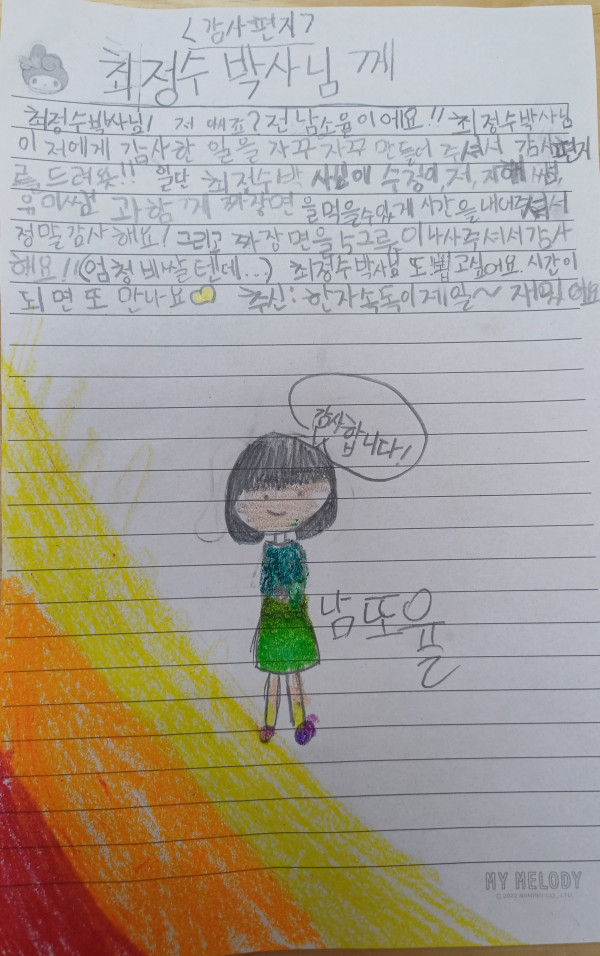 <감사편지>
최정수 박사님 께
최정수박사님! 저 얘죠? 전 남소율이에요!! 최정수박사님
이 저에게 감사한 일을 자꾸 자꾸 만들어 주셔서 감사편지
를 드려왓!! 일단 최정수박사님이 수정이, 저, 지혜쌤,
유미쌤 과함께 짜장면을먹을수있게 시간을내대주셔서
정말감사해요! 그리고 짜장면을 그릇이나사주셔서감사
해요!!(엄청비쌀텐데...) 최정수박사님 또뵙고싶어요. 시간이
되면또 만나요 추신: 한자속독이제일~ 재밌어요
감사합니다!
남또율
MY MELODY